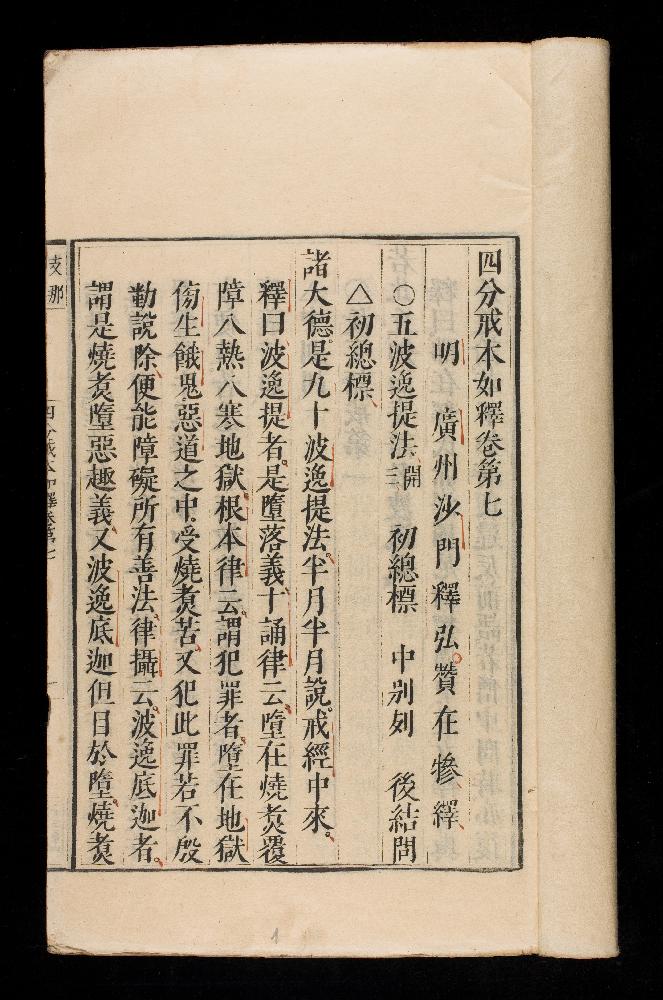 四分戒本如釋卷第七
明 廣州沙門釋弘贊在犙繹
○五波逸提法三開 初總標 中別列 後結問
△初總標
諸大德。是九十波逸提法。半月半月說。戒經中來。
釋曰。波逸提者。是墮落義。十誦律云。墮在燒煑覆
障八熱八寒地獄。根本律云。謂犯罪者。墮在地獄
傍生餓鬼惡道之中。受燒煑苦。又犯此罪。若不殷
勤說除。便能障礙所有善法。律攝云。波逸底迦者。
謂是燒煑墮惡趣義。又波逸底迦。但目於墮。燒煑
支那
四分戒本如釋卷第七
1